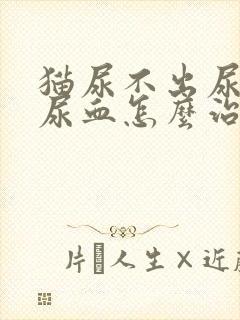 猫尿不出尿
尿血怎麼治
片 人生×近